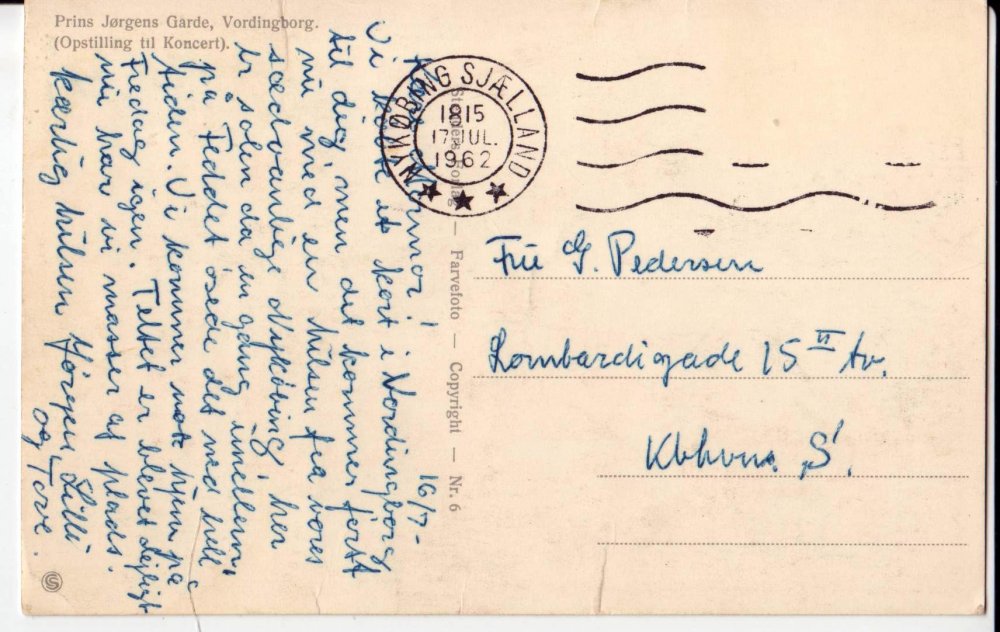 Prins Jørgens Garde, Vordingborg.
(Opstilling til Koncert).
16/7-
Kære Mormor!
Vi købte et kort i Vordingborg
til dig men det kommer først
nu med en hilsen fra vores
sædvanlige Nykøbing, her
er solen da en gang imellem,
på Feddet øsede det ned hele
tiden. Vi kommer nok hjem på
Fredag igen. Teltet er blevet dejligt
nu har vi masser af plads.
Kærlig hilsen Jørgen, Lilli
og Tove.
NYKØBING SJÆLLAND
1815
17.JUL.
1962
Forlag — Farvefoto — Copyright — Nr. 6
Frue G. Pedersen
Lombardigade 15 II tv.
Kbhvn. S.